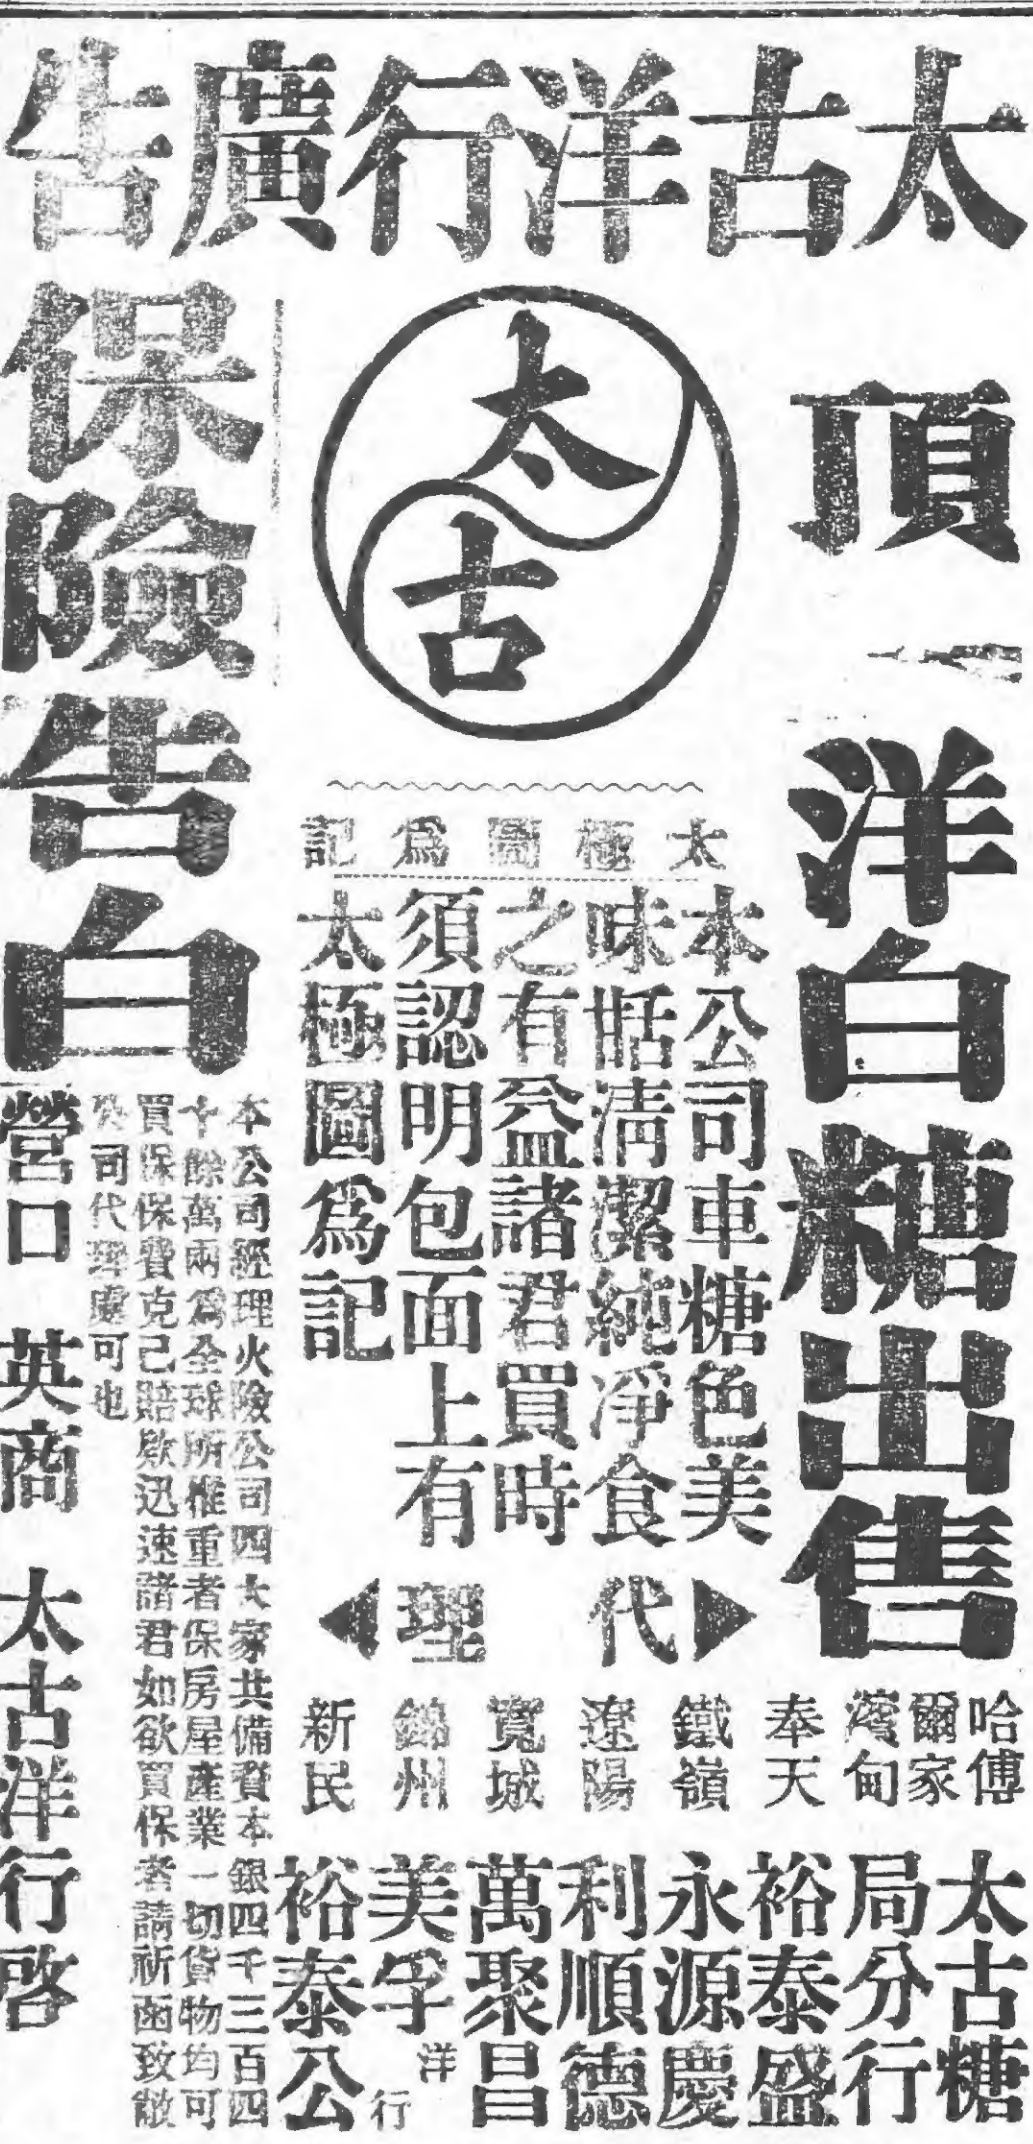 太古洋行廣告
頂
洋白糖出售
太古
太極圖爲記
本公司車糖色美
味甛淸潔純淨食
之有益諸君買時
須認明包面上有
太極圖爲記
代理
哈爾濱傅家甸 太古糖局分行
奉天 裕泰盛
鐵嶺 永源慶
遼陽 利順德
寬城 萬聚昌
錦州 美孚洋行
新民 裕泰公
保險告白
本公司經理火險公司四大家共備資本銀四千三百四
十餘萬兩爲全球所推重者保房屋產業一切貨物均可
買保保費克己賠欵迅速諸君如欲買保者請祈函致敝
公司代理處可也
營口 英商 太古洋行啓